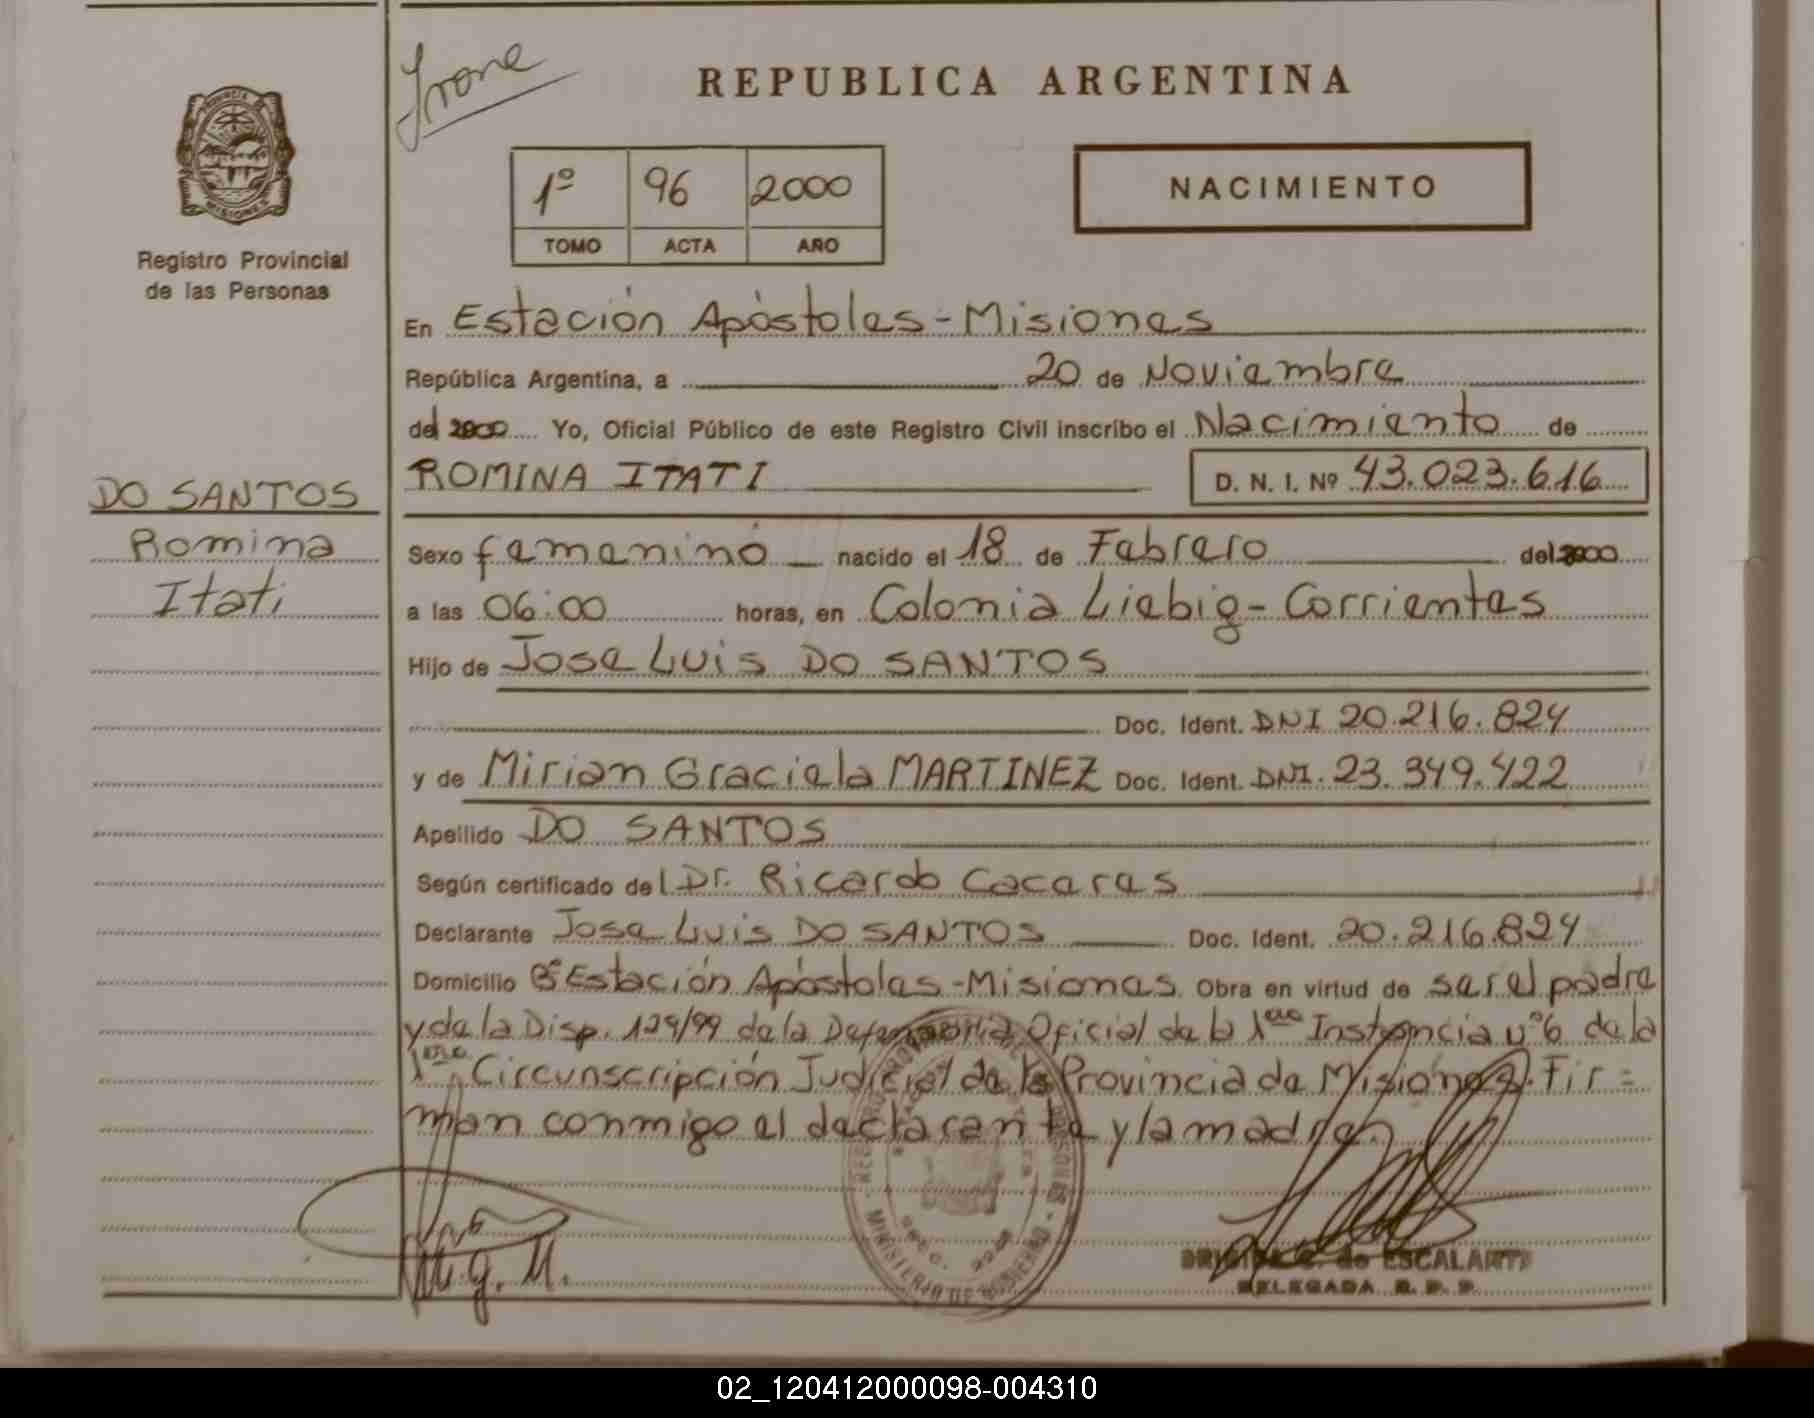 Irone
REPUBLICA ARGENTINA
1º 96 2000
TOMO ACTA AÑO
NACIMIENTO
PROVINCIA DE
MISIONES
Registro Provincial
de las Personas
En Estación Apóstoles - Misiones
República Argentina, a 20 de Noviembre
del 2000 Yo, Oficial Público de este Registro Civil inscribo el Nacimiento de
ROMINA ITATI D. N. I. Nº 43.023.616
DO SANTOS
Romina
Itati
Sexo femenino nacido el 18 de Febrero del 2000
a las 06:00 horas, en Colonia Liebig - Corrientes
Hijo de Jose Luis DO SANTOS
Doc. Ident. DNI 20.216.824
y de Mirian Graciela MARTINEZ Doc. Ident. DNI. 23.349.422
Apellido DO SANTOS
Según certificado del Dr. Ricardo Caceres
Declarante Jose Luis DO SANTOS Doc. Ident. 20.216.824
Domicilio Bº Estación Apóstoles - Misiones Obra en virtud de ser el padre
y de la Disp. 129/99 de la Defensoría Oficial de la 1era Instancia nº 6 de la
1era Circunscripción Judicial de la Provincia de Misiones. Fir=
man conmigo el declarante y la madre.
M.g.M.
MINISTERIO DE GOBIERNO
de ESCALANTE
DELEGADA R. P. P.
02_120412000098-004310